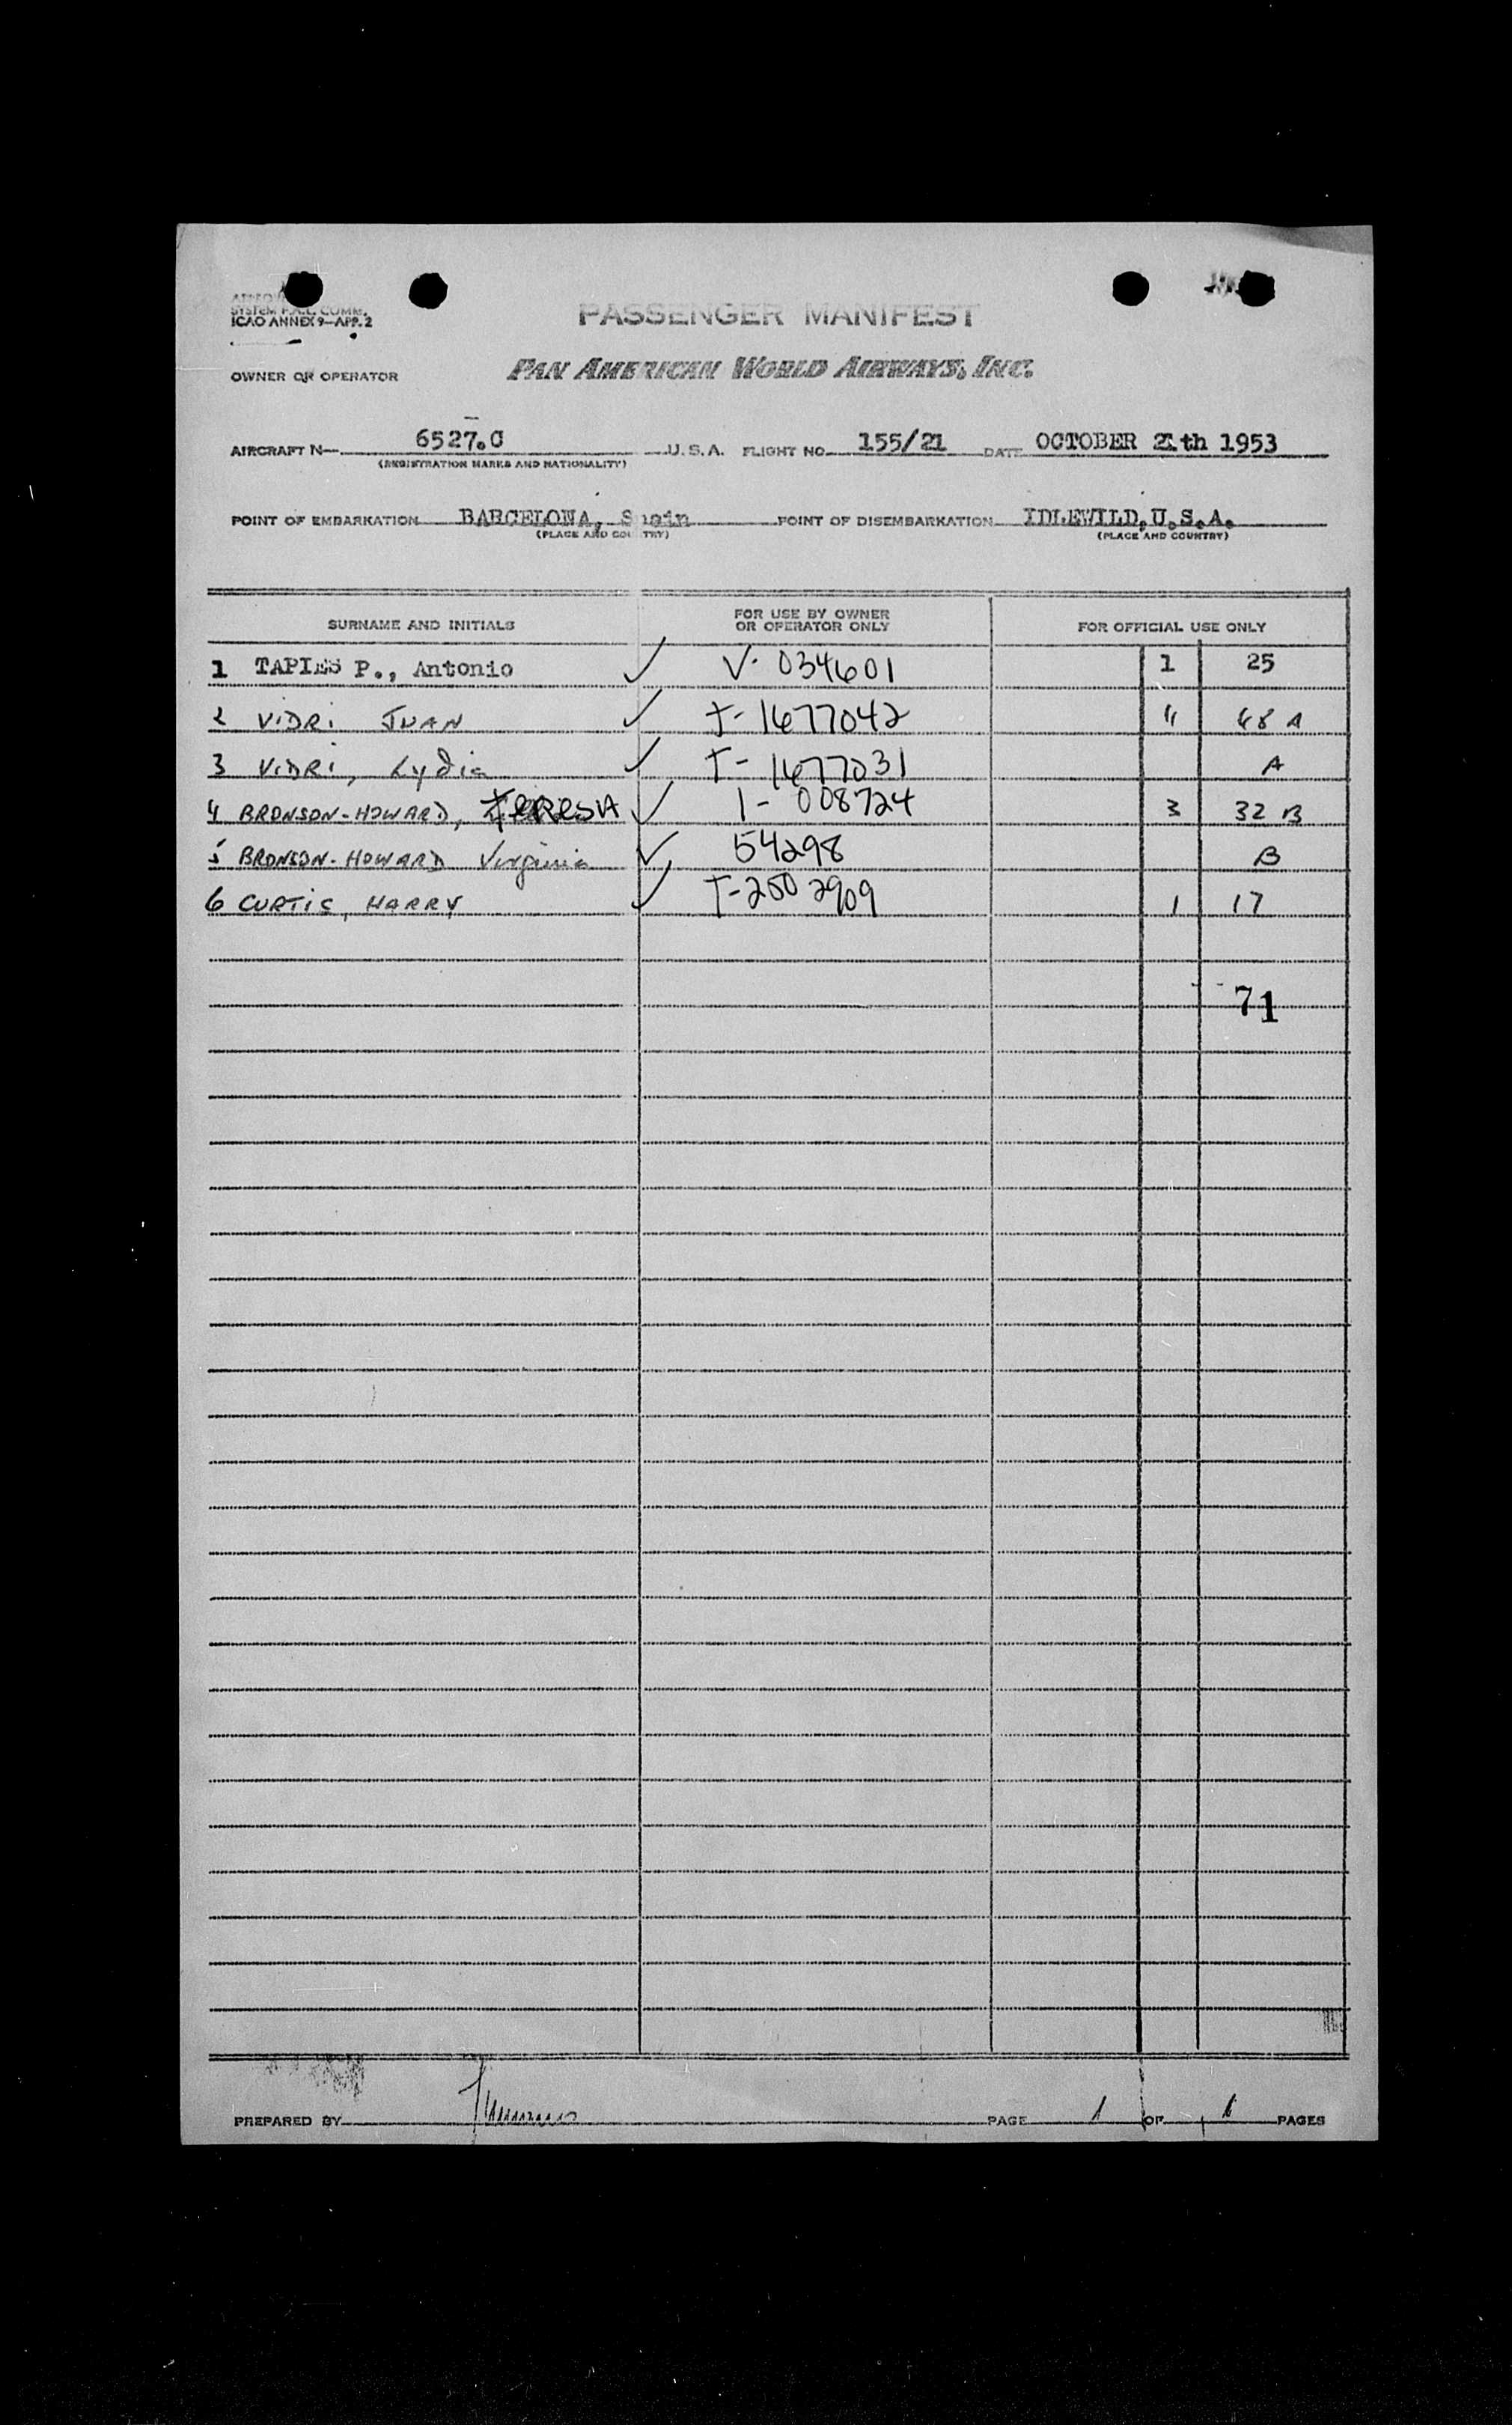 SYSTEM F.A.L. COMM.
ICAO ANNEX 9—APP. 2
PASSENGER MANIFEST
OWNER OR OPERATOR PAN AMERICAN WORLD AIRWAYS, INC.
AIRCRAFT N— 6527.C U.S.A. FLIGHT NO. 155/21 DATE OCTOBER 21th 1953
(REGISTRATION MARKS AND NATIONALITY)
POINT OF EMBARKATION BARCELONA, Spain POINT OF DISEMBARKATION IDLEWILD, U.S.A.
(PLACE AND COUNTRY) (PLACE AND COUNTRY)
SURNAME AND INITIALS FOR USE BY OWNER OR OPERATOR ONLY FOR OFFICIAL USE ONLY
1 TAPIES P., Antonio ✓ V- 034601 1 25
2 VIDRI JUAN ✓ T- 1677042 4 48 A
3 VIDRI, Lydia ✓ T- 1677031 A
4 BRONSON-HOWARD, TERESA ✓ 1- 008724 3 32 B
5 BRONSON-HOWARD Virginia ✓ 54298 B
6 CURTIS, HARRY ✓ T-250 2909 1 17
71
PREPARED BY PAGE 1 OF 1 PAGES